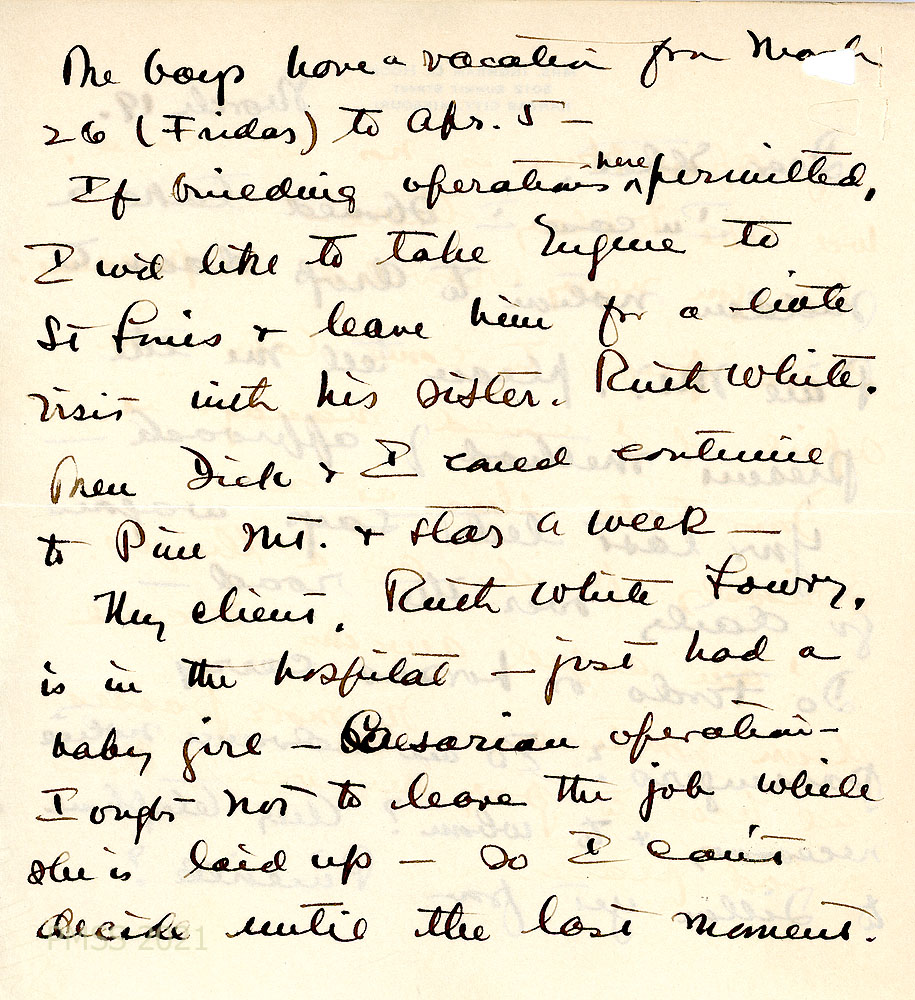 The boys have a vacation from March
26 (Friday) to Apr. 5 —
If building operations here permitted,
I wd like to take Eugene to
St Louis & leave him for a little
visit with his sister. Ruth White.
Then Dick & I could continue
to Pine Mt. & stay a week —
My client, Ruth White Lowry,
is in the hospital — just had a
baby girl — Caesarian operation —
I ought not to leave the job while
she is laid up — so I can't
decide until the last moment.
PMSS 2021